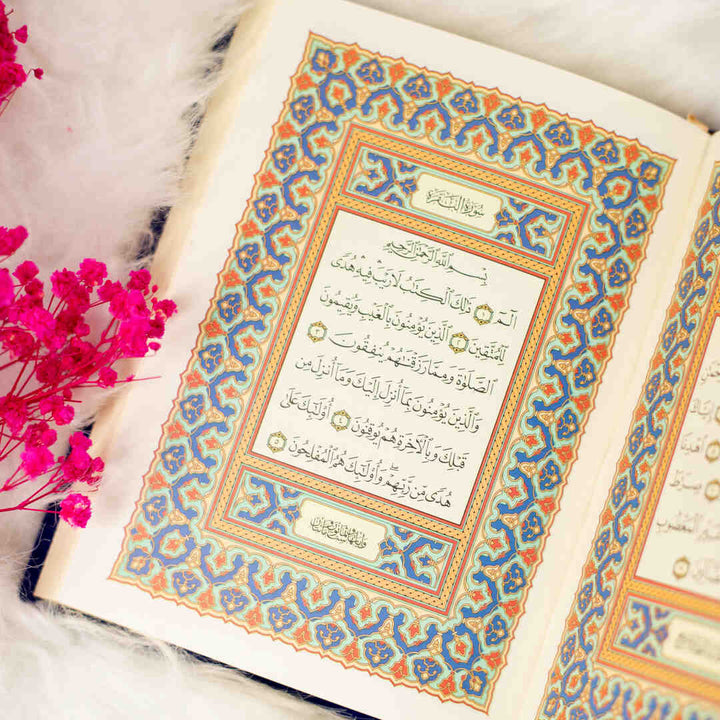 وَإِيَّاكَ
ٱهْدِنَا
صِرَٰطَ
ٱلْمَغْضُوبِ
سُورَةُ ٱلْبَقَرَةِ
بِسْمِ ٱللَّهِ ٱلرَّحْمَٰنِ ٱلرَّحِيمِ
الٓمٓ ١ ذَٰلِكَ ٱلْكِتَٰبُ لَا رَيْبَ فِيهِ هُدًى
لِّلْمُتَّقِينَ ٢ ٱلَّذِينَ يُؤْمِنُونَ بِٱلْغَيْبِ وَيُقِيمُونَ
ٱلصَّلَوٰةَ وَمِمَّا رَزَقْنَٰهُمْ يُنفِقُونَ ٣
وَٱلَّذِينَ يُؤْمِنُونَ بِمَآ أُنزِلَ إِلَيْكَ وَمَآ أُنزِلَ مِن
قَبْلِكَ وَبِٱلْءَاخِرَةِ هُمْ يُوقِنُونَ ٤ أُو۟لَٰٓئِكَ عَلَىٰ
هُدًى مِّن رَّبِّهِمْ ۖ وَأُو۟لَٰٓئِكَ هُمُ ٱلْمُفْلِحُونَ ٥